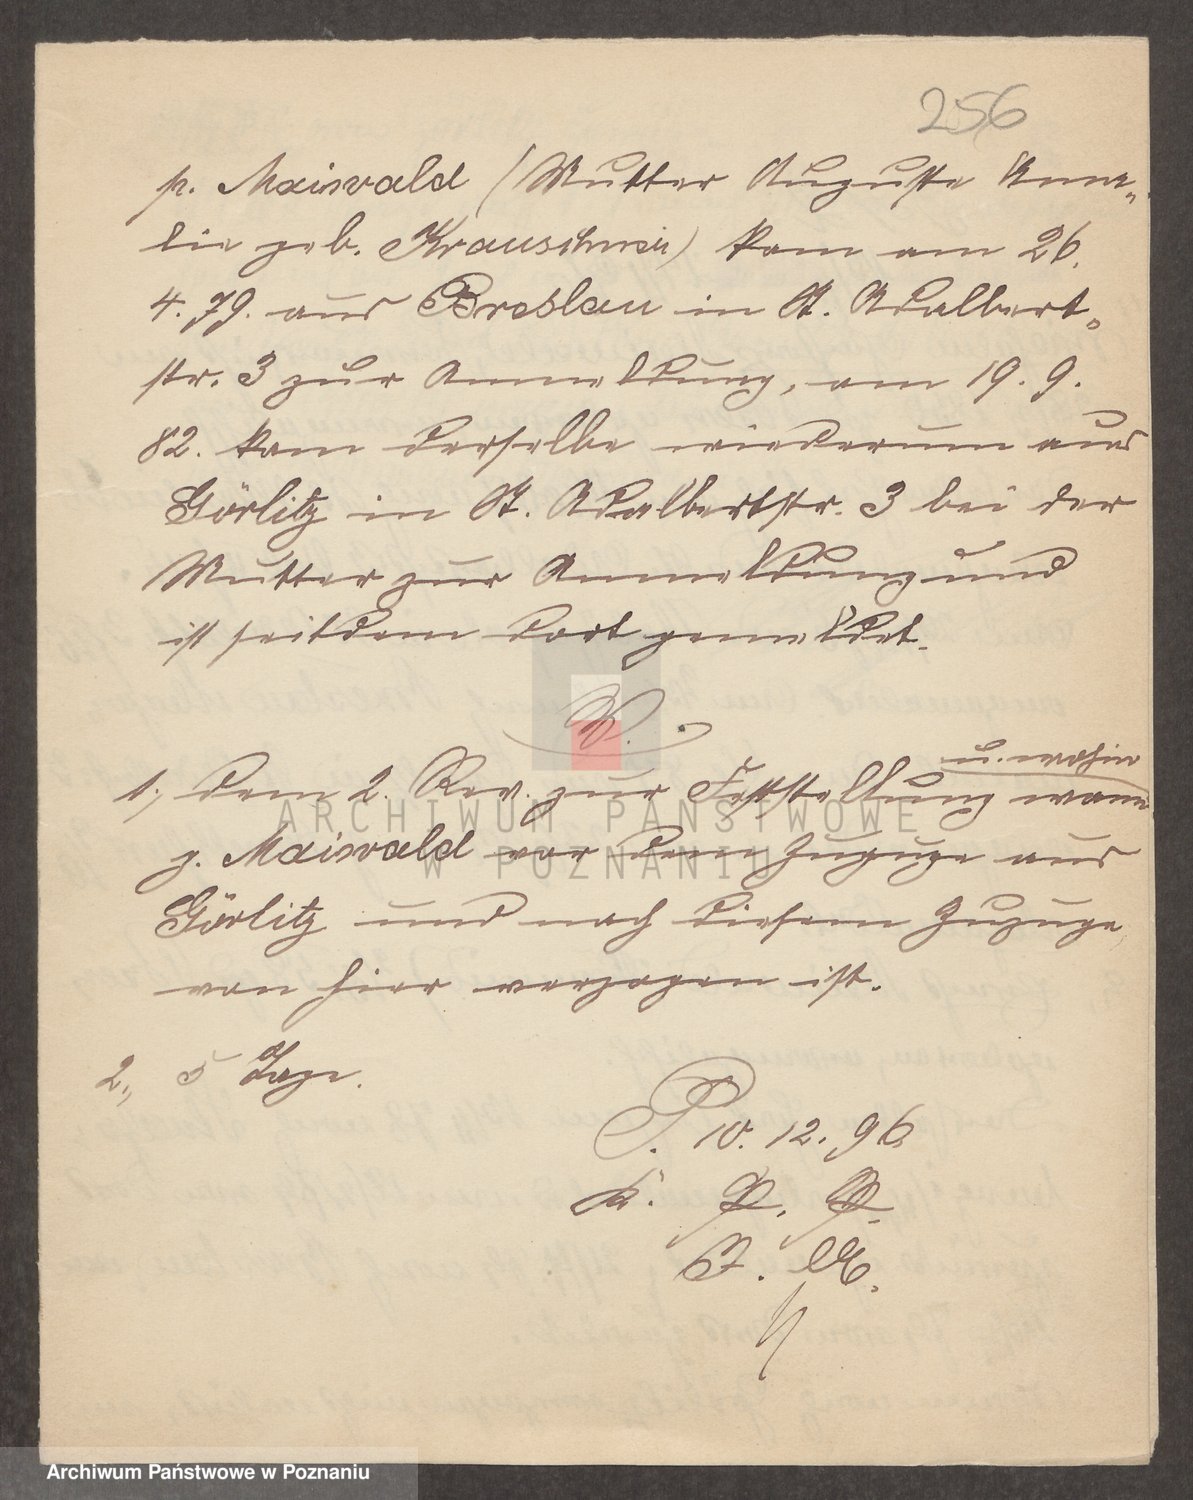 256
p. Maiwald (Mutter Auguste Ama-
lie geb. Krauschner) kam am 26.
4. 79. aus Breslau in St. Adalbert-
str. 3 zur Anmeldung, am 19. 9.
82. kam derselbe wiederum aus
Görlitz in St. Adalbertstr. 3 bei der
Mutter zur Anmeldung und
ist seitdem dort gemeldet.
V.
u. wohin
1., dem 2. Rev. zur Feststellung wann
p. Maiwald vor dem Zuzuge aus
Görlitz und nach diesem Zuzuge
von hier verzogen ist.
2., 5 Tage.
P. 10. 12. 96
K. P. P.
J. M.
ARCHIWUM PAŃSTWOWE
W POZNANIU
Archiwum Państwowe w Poznaniu